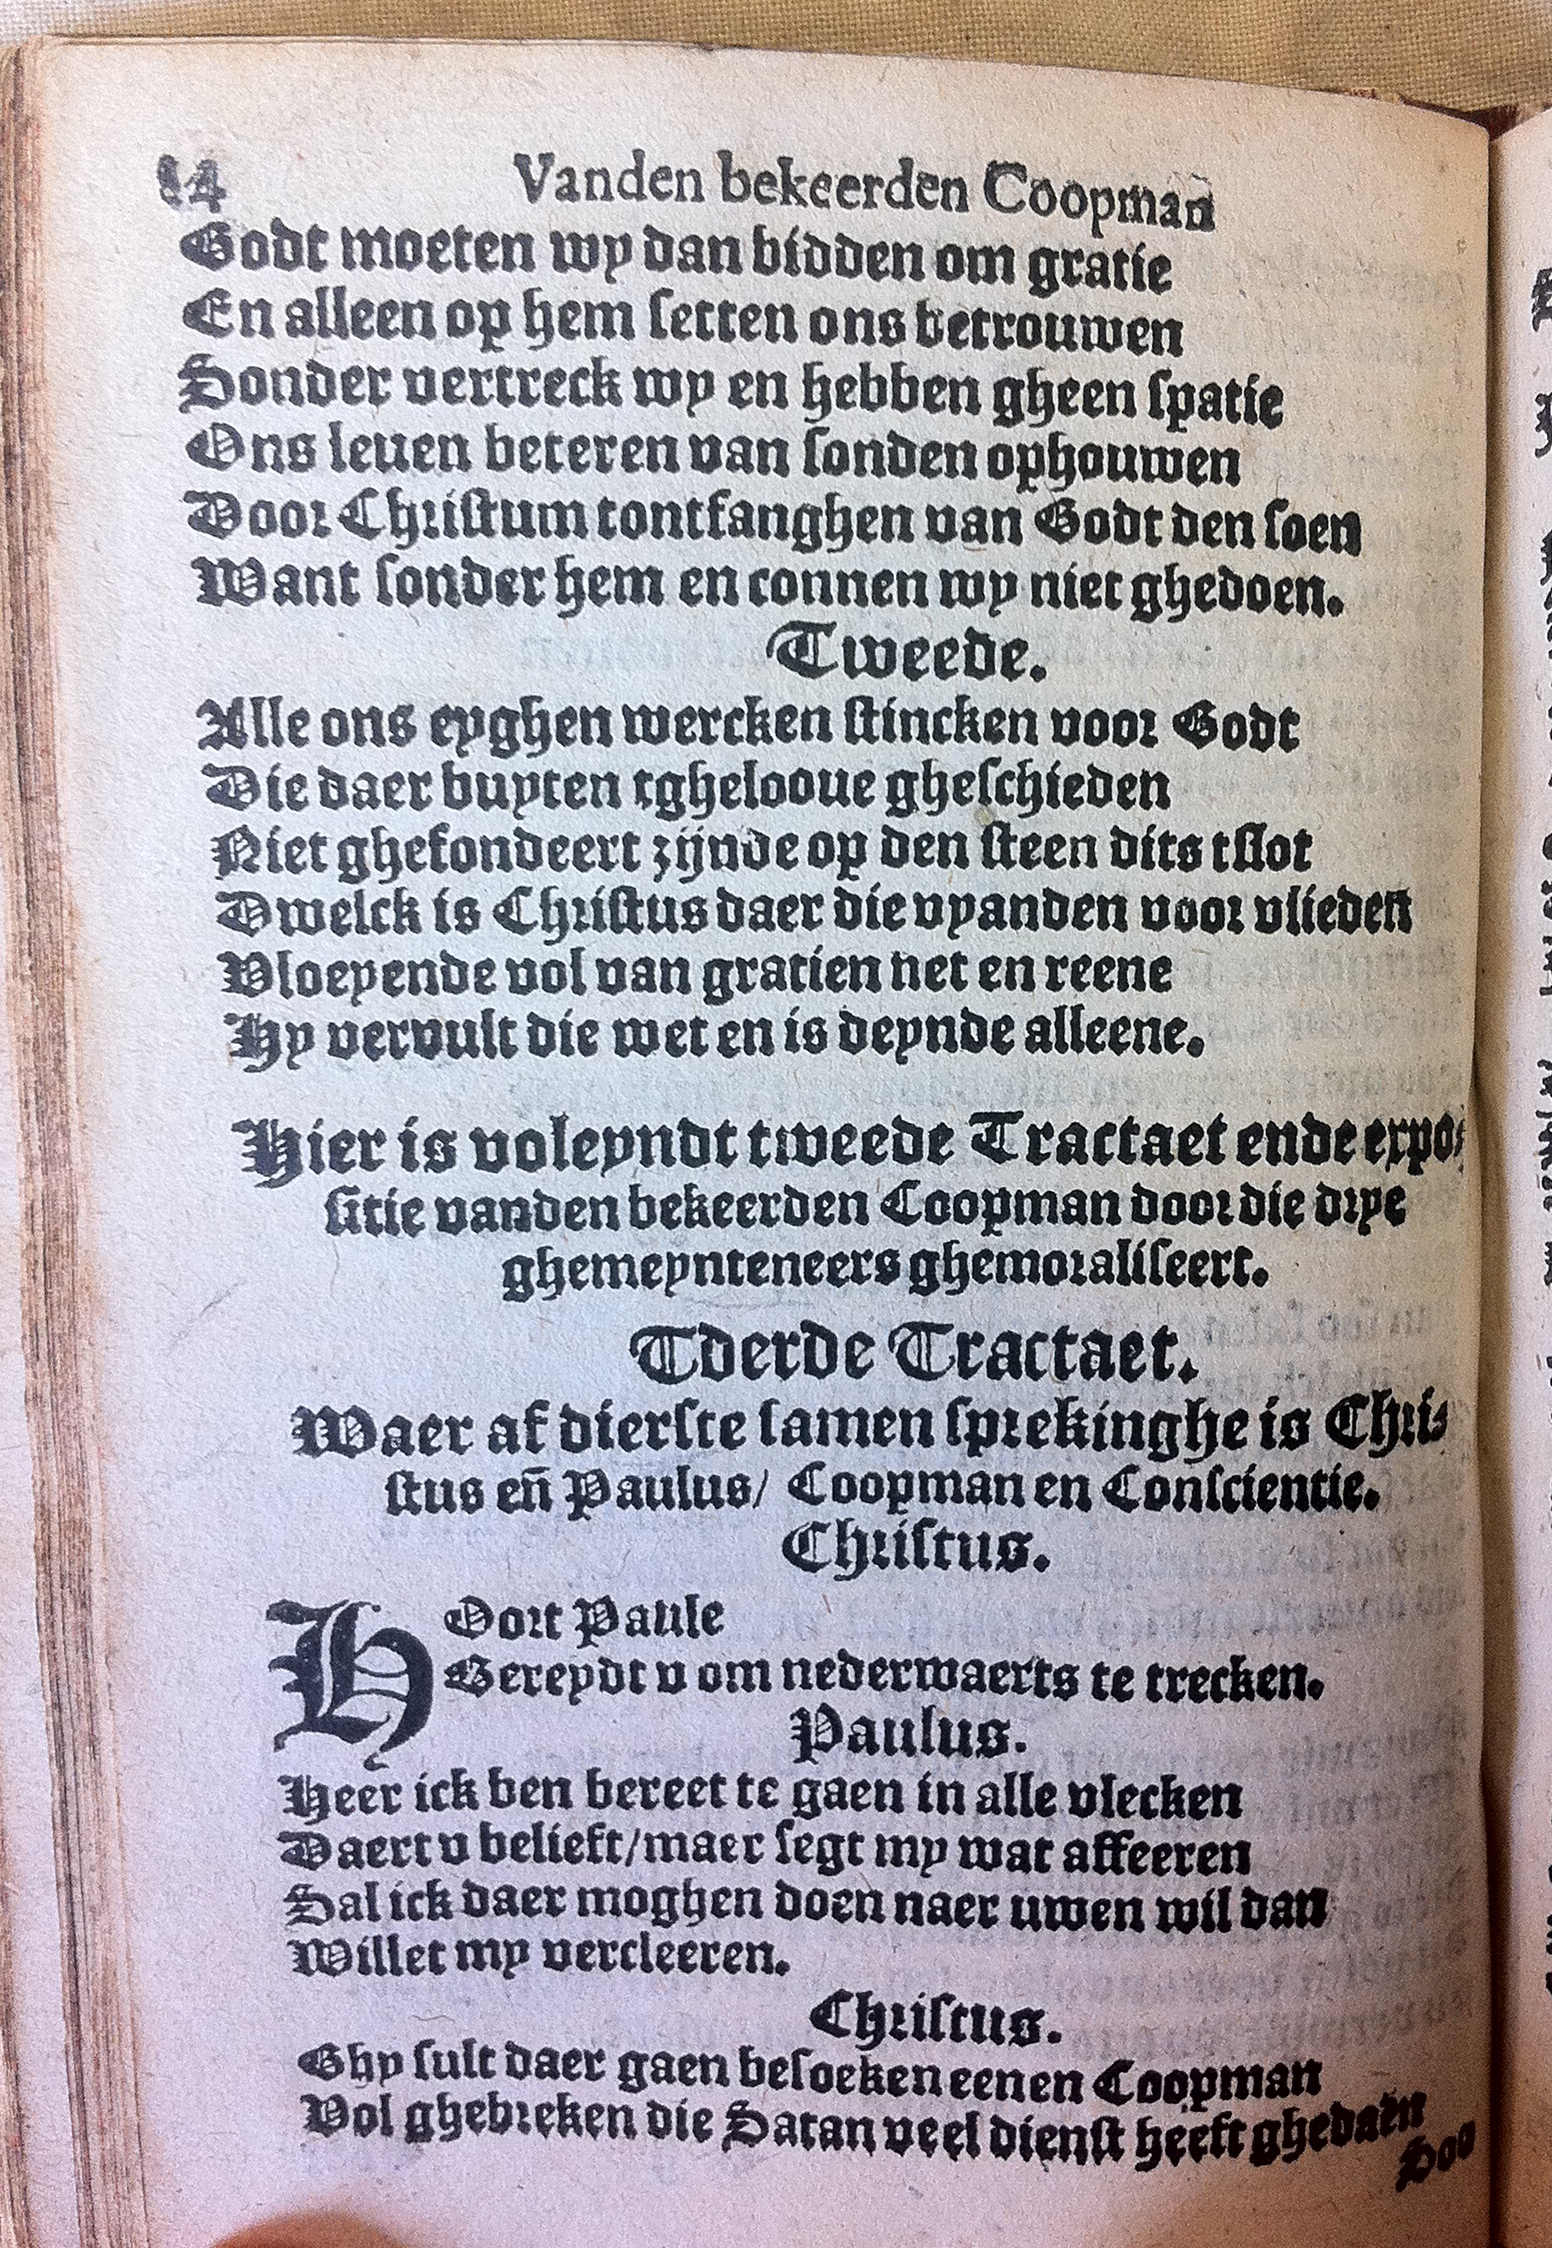 14 Vanden bekeerden Coopman
Godt moeten wy dan bidden om gratie
En alleen op hem setten ons betrouwen
Sonder vertreck wy en hebben gheen spatie
Ons leuen beteren van sonden ophouwen
Door Christum tontfanghen van Godt den soen
Want sonder hem en connen wy niet ghedoen.
Tweede.
Alle ons eyghen wercken stincken voor Godt
Die daer buyten tghelooue gheschieden
Niet ghefondeert zijnde op den steen dits tslot
Dwelck is Christus daer die vyanden voor vlieden
Vloeyende vol van gratien net en reene
Hy vervult die wet en is deynde alleene.
Hier is voleyndt tweede Tractaet ende expo-
sitie vanden bekeerden Coopman door die drye
ghemeynteneers ghemoraliseert.
Tderde Tractaet.
Waer af dierste samen sprekinghe is Chri-
stus en̄ Paulus/ Coopman en Conscientie.
Christus.
HOort Paule
Bereydt v om nederwaerts te trecken.
Paulus.
Heer ick ben bereet te gaen in alle vlecken
Daert v belieft/maer segt my wat affeeren
Sal ick daer moghen doen naer uwen wil dan
Willet my vercleeren.
Christus.
Ghy sult daer gaen besoeken eenen Coopman
Vol ghebreken die Satan veel dienst heeft ghedaen
Soo